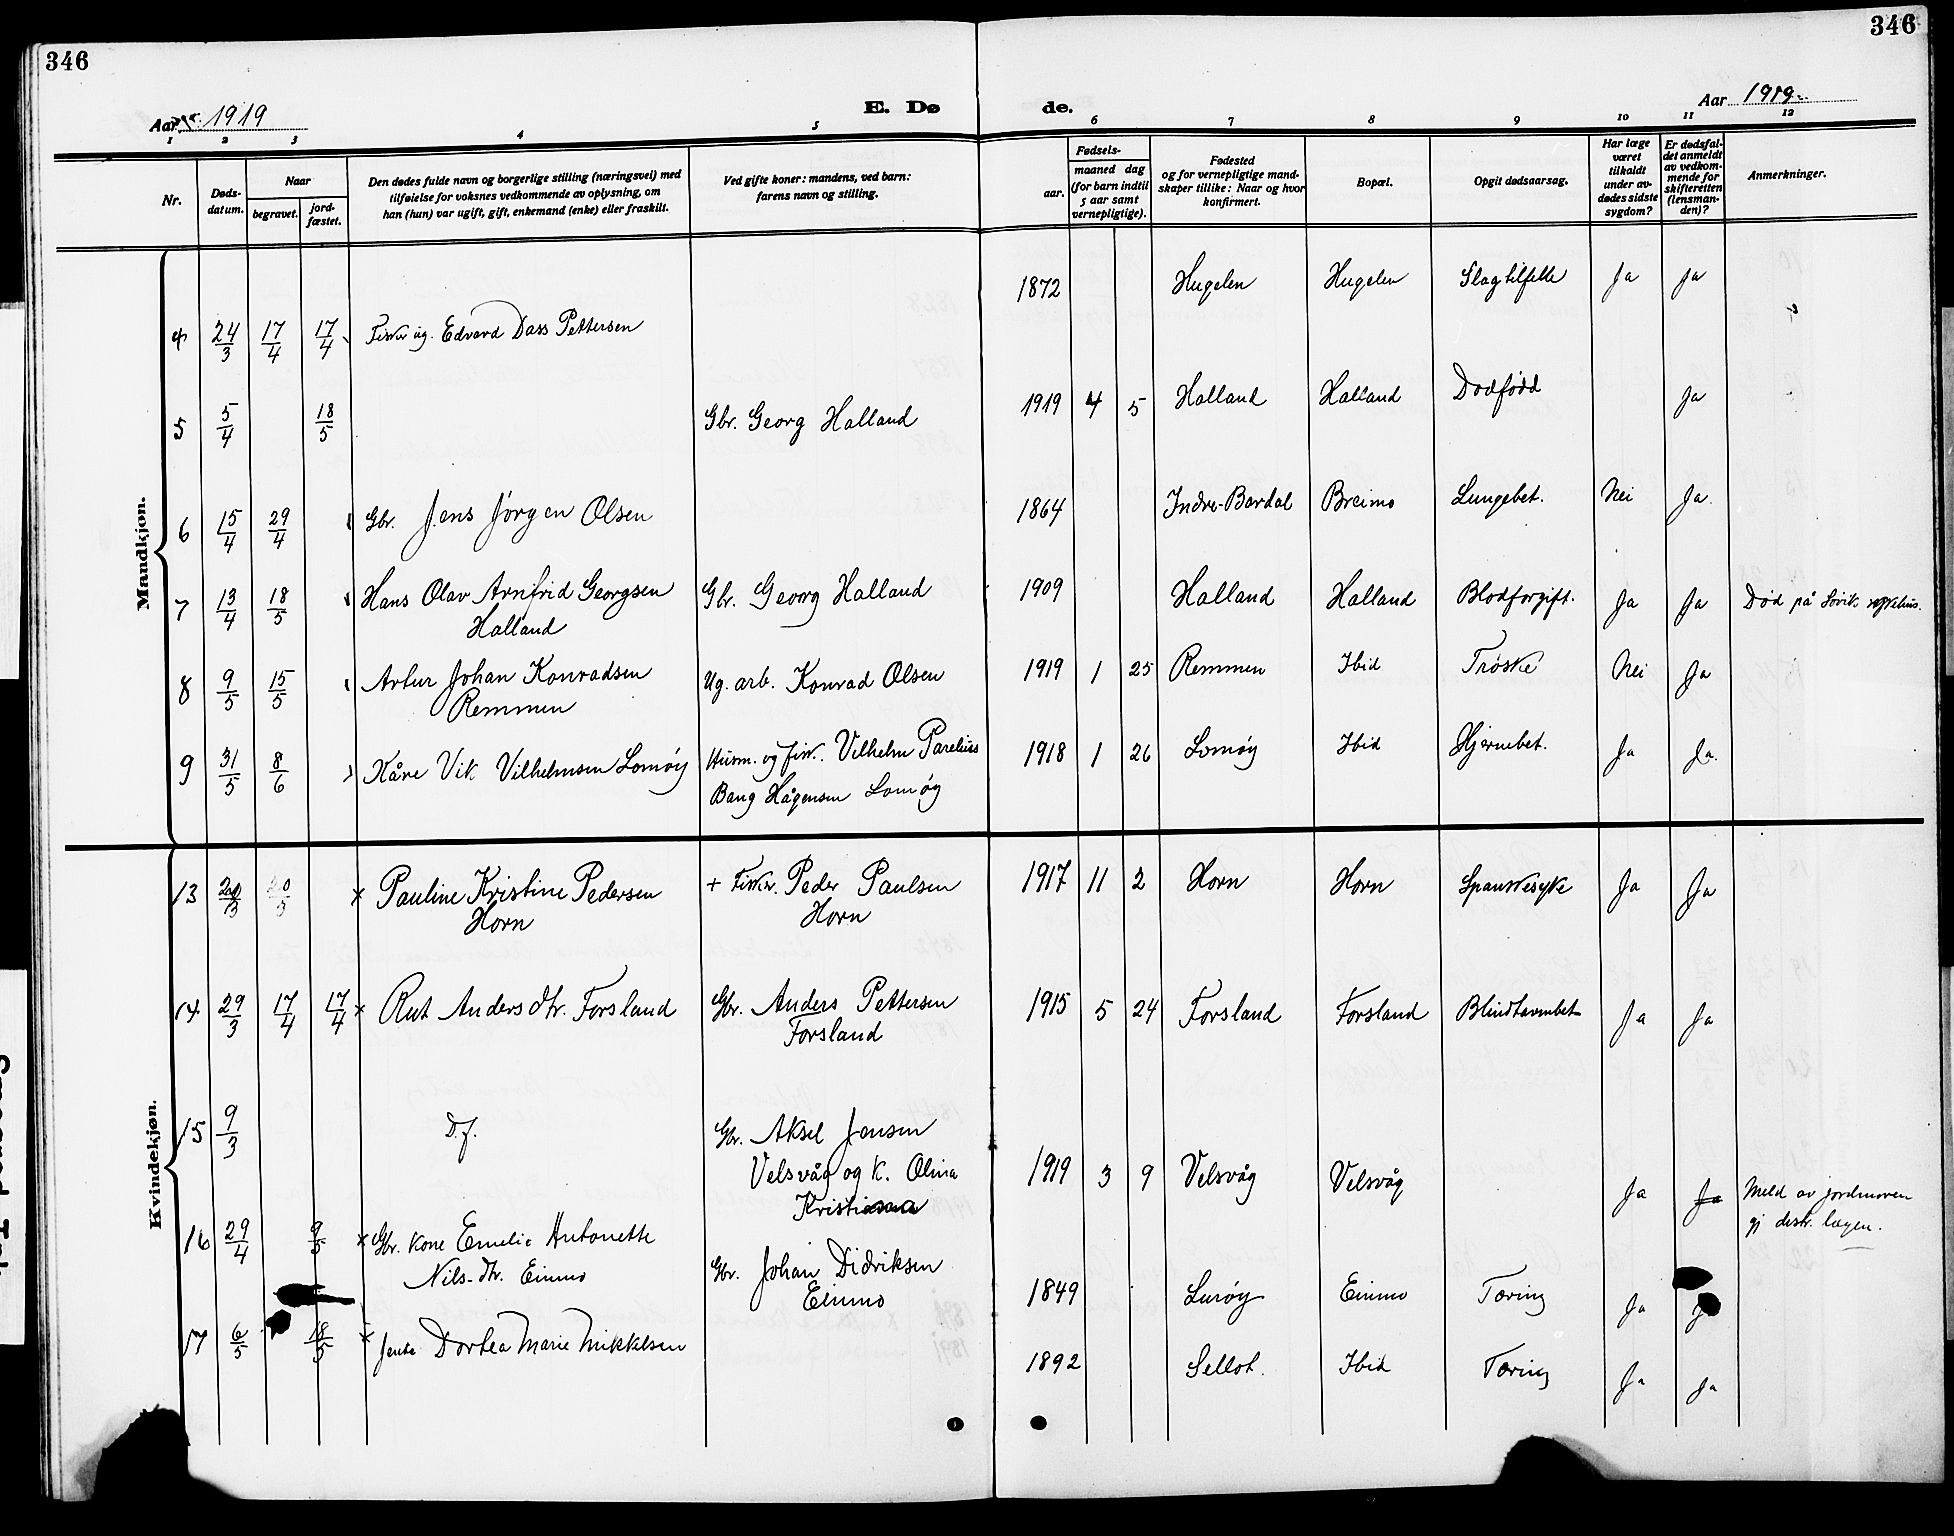 346
346
Aar 1919
E. Dø
de.
Aar 1919.
1 2 3 4 5 6 7 8 9 10 11 12
Nr.
Døds-
datum.
Naar
begravet.
jord-
fæstet.
Den dødes fulde navn og borgerlige stilling (næringsvei) med
tilføielse for voksnes vedkommende av oplysning, om
han (hun) var ugift, gift, enkemand (enke) eller fraskilt.
Ved gifte koner: mandens, ved barn:
farens navn og stilling.
Fødsels-
aar.
maaned dag
(for barn indtil
5 aar samt
vernepligtige).
Fødested
og for vernepligtige mand-
skaper tillike: Naar og hvor
konfirmert.
Bopæl.
Opgit dødsaarsag.
Har læge
været
tilkaldt
under av-
dødes sidste
sygdom?
Er dødsfal-
det anmeldt
av vedkom-
mende for
skifteretten
(lensman-
den)?
Anmerkninger.
Mandkjøn.
4 24/3 17/4 17/4 Fisker ug. Edvard Dass Pettersen 1872 Hugelen Hugelen Slagtilfelle Ja Ja
5 5/4 18/5 Gbr. Georg Halland 1919 4 5 Halland Halland Dødfødd Ja
6 15/4 29/4 Gbr. Jens Jørgen Olsen 1864 Indre-Bardal Breimo Lungebet. Nei Ja.
7 13/4 18/5 Hans Olav Arnfrid Georgsen Gbr. Georg Halland 1909 Halland Halland Blodforgift. Ja Ja Død på Søvik sykehus.
Halland
8 9/5 15/5 Artur Johan Konradsen Ug. arb. Konrad Olsen 1919 1 25 Remmen Ibid Trøske Nei Ja
Remmen
9 31/5 8/6 Kåre Vik Vilhelmsen Lomøy Husm. og fisk. Vilhelm Parelius 1918 1 26 Lomøy Ibid Hjernebet. Ja Ja.
Bang Hågensen Lomøy
Kvindekjøn.
13 20/3 20/5 × Pauline Kristine Pedersen + Fisker. Peder Paulsen 1917 11 2 Horn Horn Spanskesyke Ja Ja
Horn Horn
14 29/3 17/4 17/4 × Rut Andersdtr. Forsland Gbr. Anders Pettersen 1915 5 24 Forsland Forsland Blindtarmbet Ja Ja
Forsland
15 9/3 D.f. Gbr. Aksel Jensen
Velsvåg og k. Olina 1919 3 9 Velsvåg Velsvåg Ja Ja Meld av jordmoren
Kristi gj. distr. lægen.
16 29/4 9/5 × Gbr. kone Emelie Antonette Gbr. Johan Didriksen
Nils-dtr. Einmo Einmo 1849 Lurøy Einmo Tæring Ja Ja
17 6/5 18/5 × Jente Dortea Marie Mikkelsen 1892 Selløt. Ibid Tæring Ja Ja